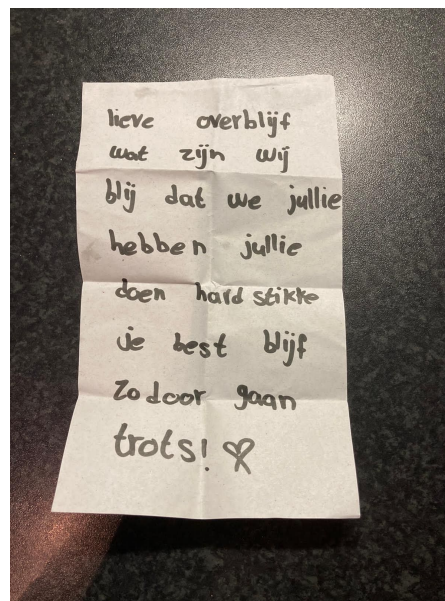 lieve overblijf
wat zijn wij
blij dat we jullie
hebben jullie
doen hard stikke
je best blijf
zo door gaan
trots!